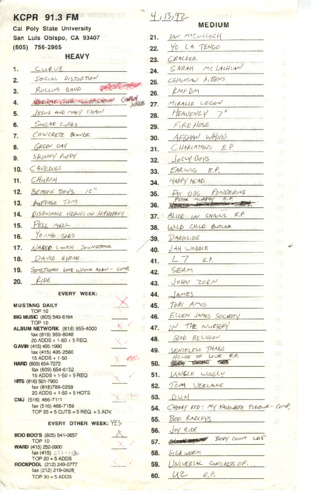 KCPR 91.3 FM
4.13.92
Cal Poly State University
San Luis Obispo, CA 93407
(805) 756-2965
HEAVY
1. CURVE
2. SOCIAL DISTORTION
3. ROLLINS BAND
4.
5. JESUS AND MARY CHAIN
6. SUGAR CUBES
7. CONCRETE BLONDE
8. GREEN DAY
9. SKINNY PUPPY
10. CAVEDOGS
11. CHURCH
12. BEASTIE BOYS 12"
13. AWESOME TOM
14. DISPOSABLE HEROES OF HIPHOPRISY
15. PELL MELL
16. YOUNG GODS
17. NAKED LUNCH SOUNDTRACK
18. DAVID BYRNE
19. SOMETIMES GOD
20. RIDE
EVERY WEEK:
MUSTANG DAILY
TOP 10
BIG MUSIC (805) 549-6164
TOP 10
ALBUM NETWORK (818) 955-4000
fax (818) 955-8048
20 ADDS + 1-60 + 5 REQ.
GAVIN (415) 495-1990
fax (415) 495-2580
15 ADDS + 1-50
HARD (609) 654-7272
fax (609) 654-6152
15 ADDS + 1-50 + 5 REQ
HITS (818) 501-7900
fax (818) 789-0259
20 ADDS + 1-60 + 5 HOTS
CMJ (516) 466-7111
fax (516) 466-7159
TOP 35 + 5 CUTS + 5 REQ. + 3 ADV
EVERY OTHER WEEK: YES
BOO BOO'S (805) 541-0657
TOP 10
WARD (415) 252-0900
fax (415)
TOP 20 + 5 ADDS
ROCKPOOL (212) 249-0777
fax (212) 219-0928
TOP 30 + 5 ADDS
MEDIUM
21. IAN MCCULLOCH
22. YO LA TENGO
23. CRACKER
24. SARAH MCLACHLAN
25. CHAINSAW KITTENS
26. KMFDM
27. MIRACLE LEGION
28. HEAVENLY 7"
29. FIREHOSE
30. AFGHAN WHIGS
31. CHARLATANS E.P.
32. JOLLY BOYS
33. EARWIG E.P.
34. HAPPYHEAD
35. PO DOG PONDERING
36. PETER MURPHY E.P.
37. ALICE IN CHAINS E.P.
38. WILD CHILD BUTLER
39. DARKSIDE
40. JAH WOBBLE
41. L7 E.P.
42. SEAM
43. JOHN ZORN
44. JAMES
45. TORI AMOS
46. ELLEN JAMES SOCIETY
47. IN THE NURSERY
48. BAD RELIGION
49. SENSELESS THINGS
50. HOUSE OF LOVE E.P.
51. UNCLE WIGGLY
52. TOM VERLAINE
53. DUH
54. CHERRY RED: MY FAVOURITE FLAVOUR - COMP.
55. BOO RADLEYS
56. JOY RIDE
57. BODY COUNT
58. SICKWORM
59. UNIVERSAL CONGRESS OF...
60. U2 E.P.